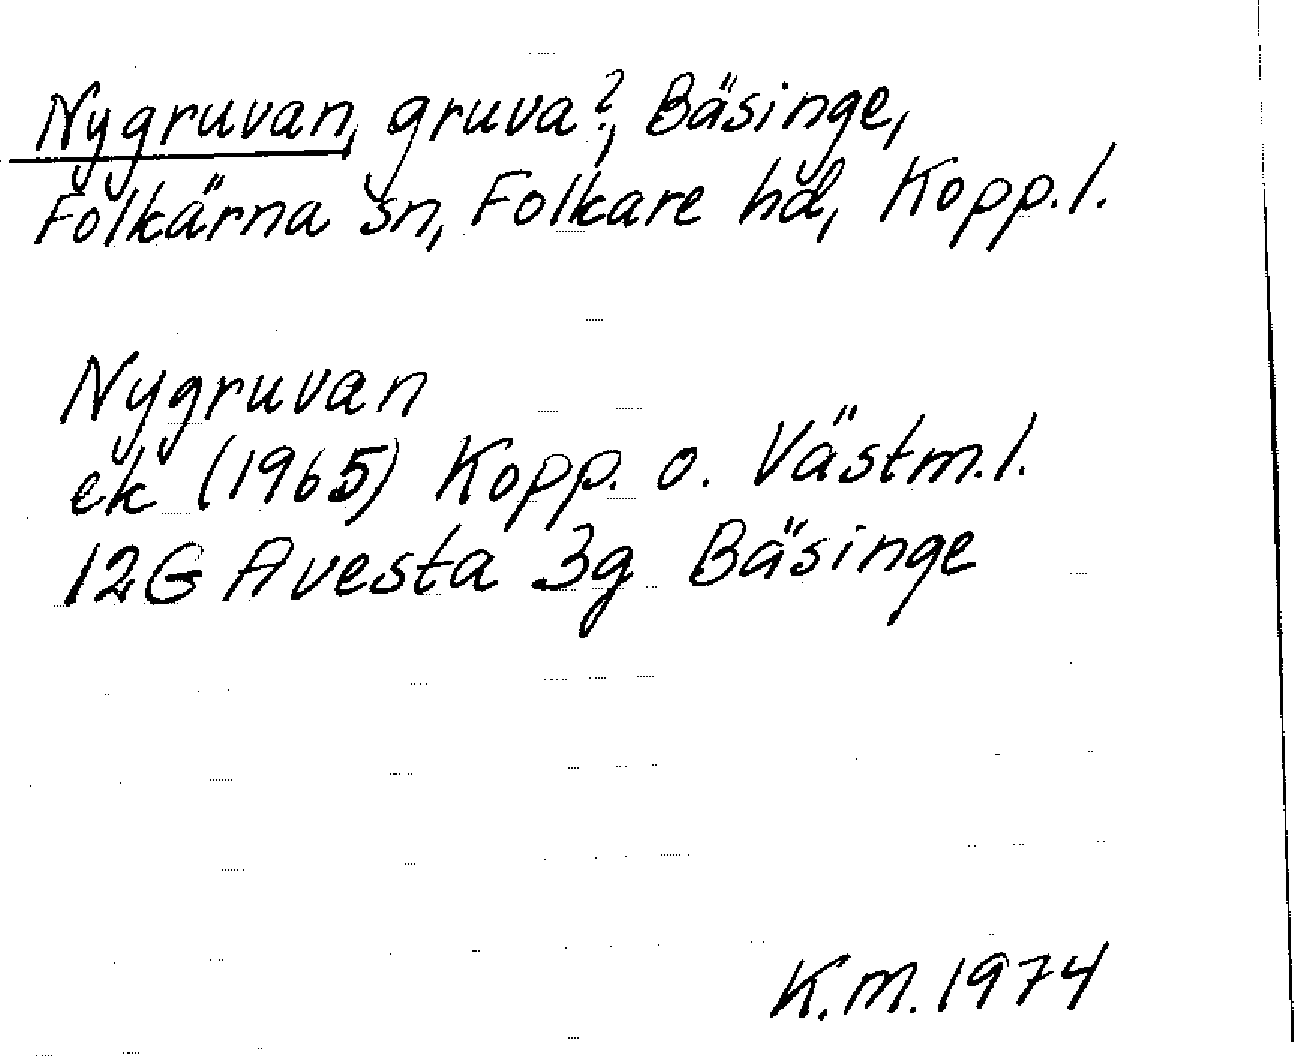 Nygruvan, gruva?, Bäsinge,
Folkärna sn, Folkare hd, Kopp. l.
Nygruvan
ek (1965) Kopp. o. Västm. l.
12G Avesta 3g Bäsinge
K.M. 1974